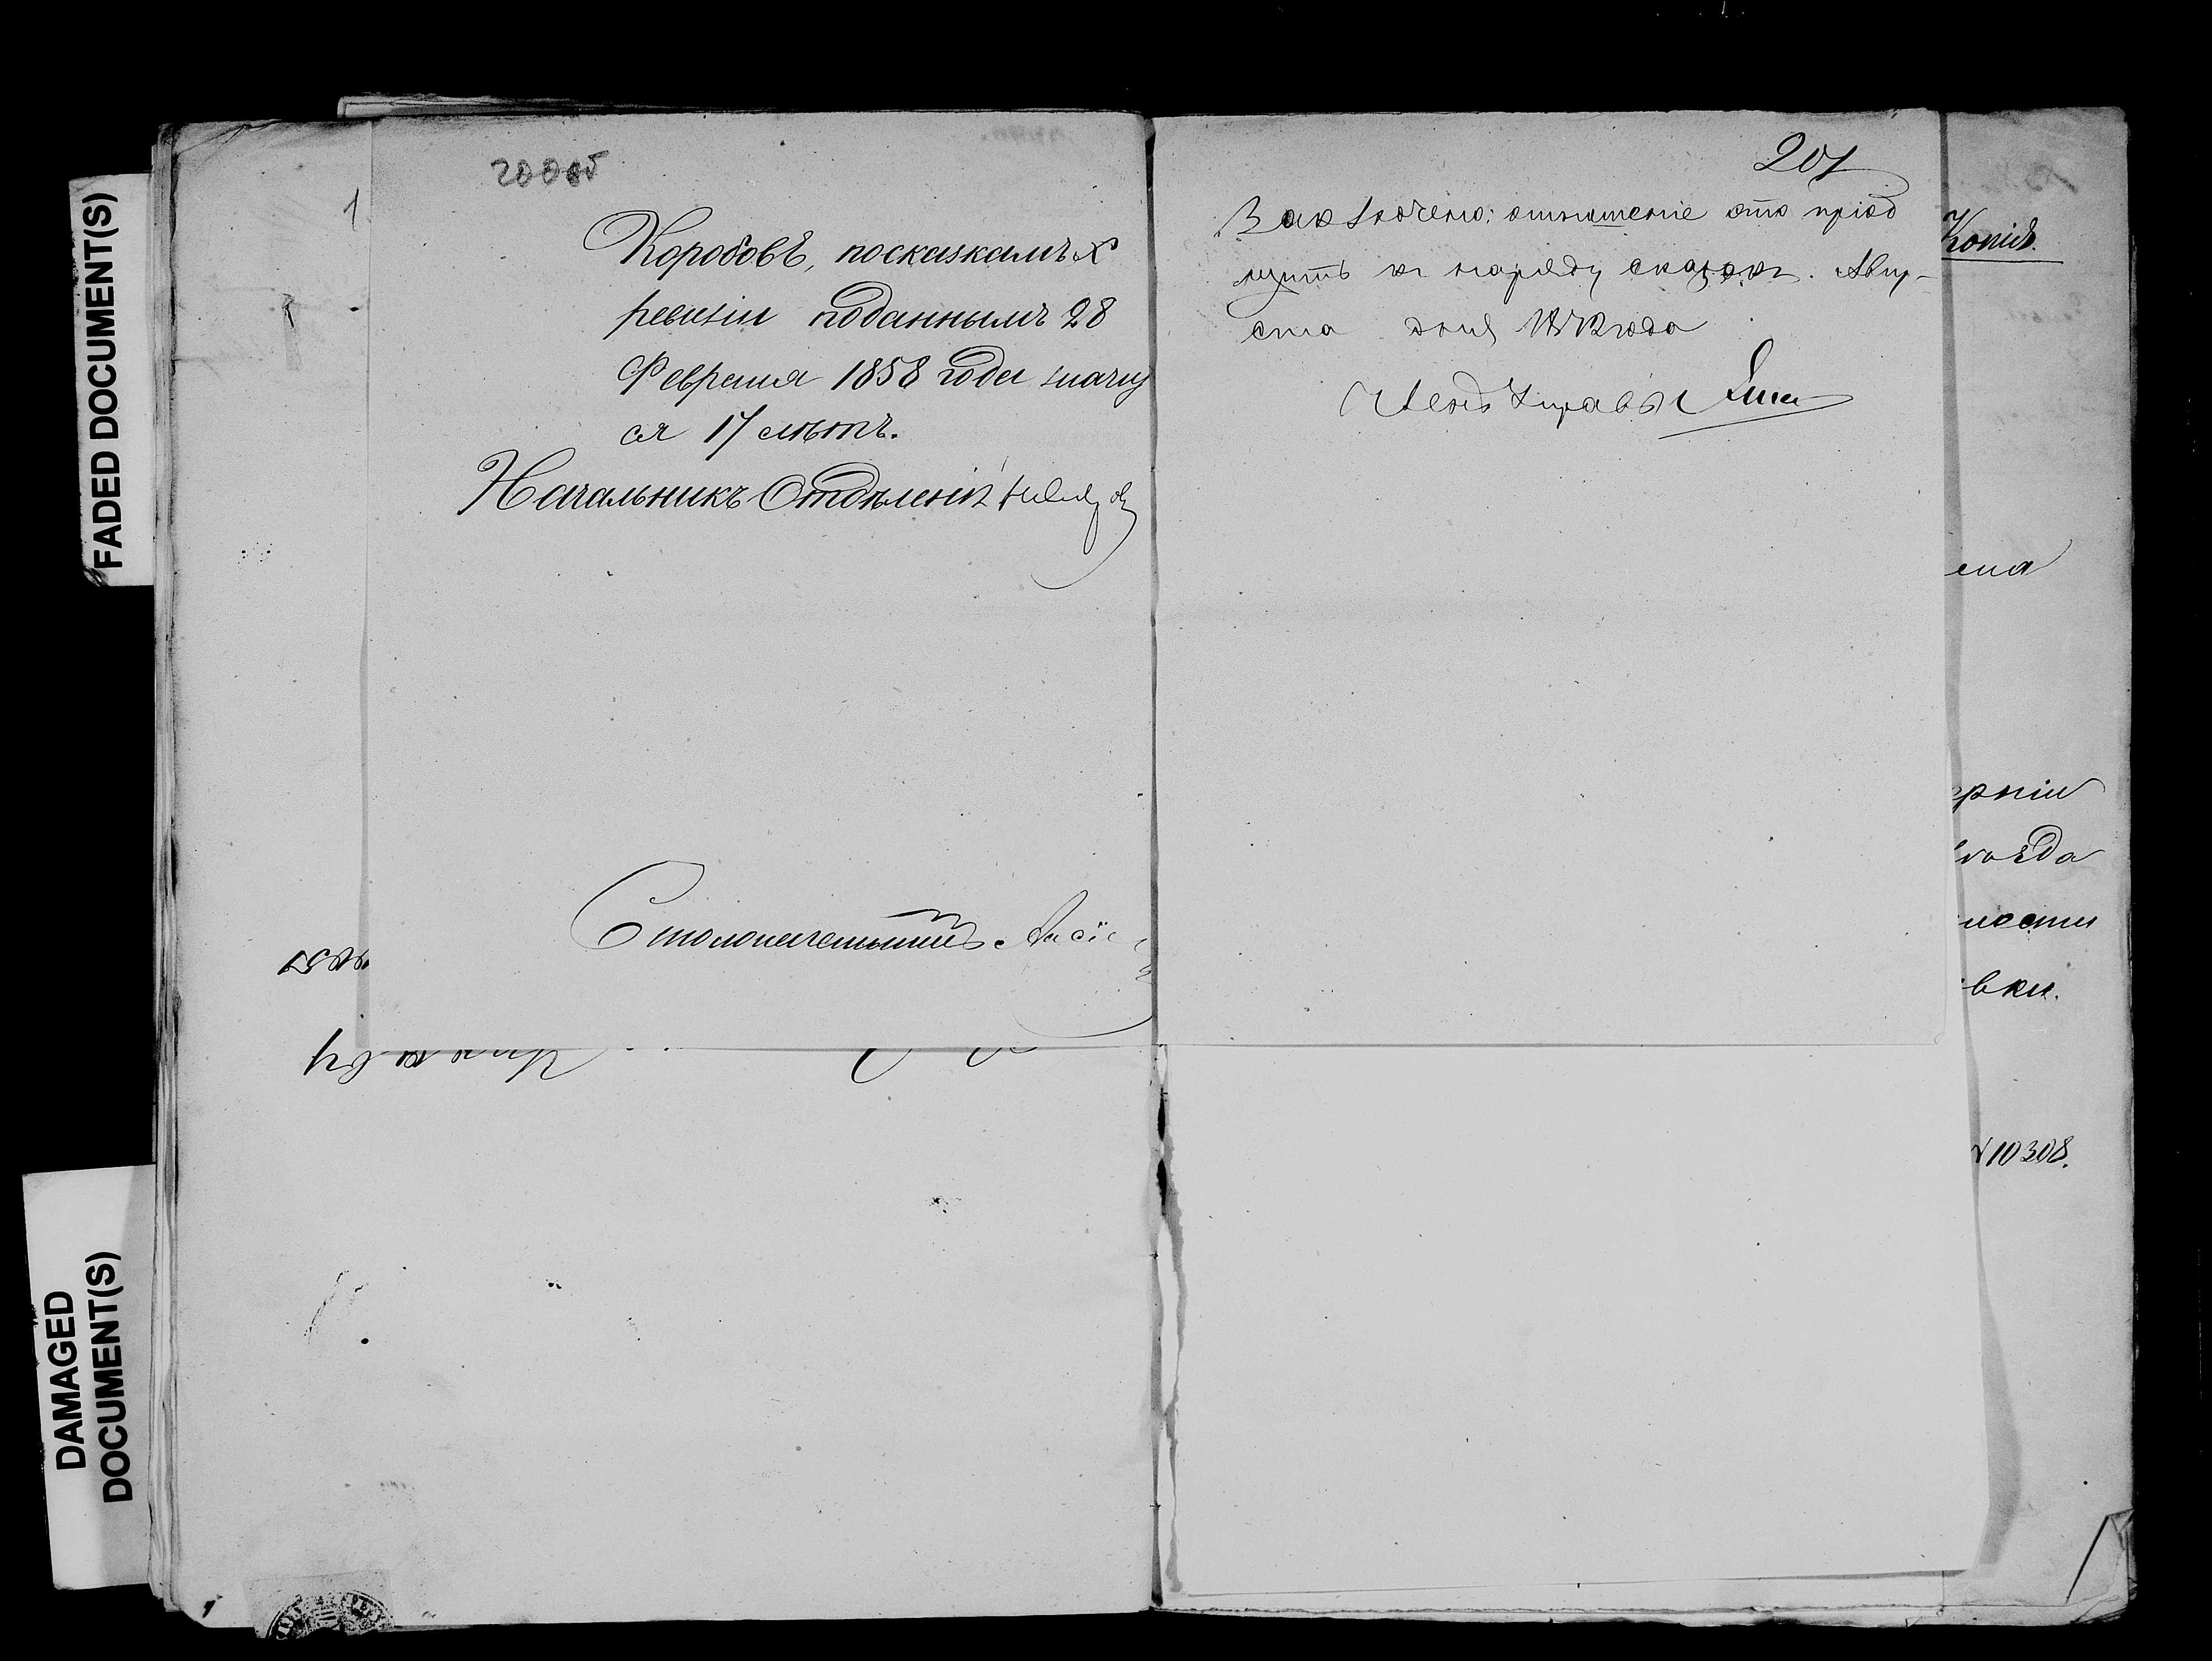 FADED DOCUMENT(S)
DAMAGED
DOCUMENT(S)
200 об
1
Коробовъ, посказкамъ X
ревизіи поданнымъ 28
Февраля 1858 года значу
ся 17 лѣтъ.
Начальникъ Отдѣленія
Столоначальникъ
201
Заключено: отношеніе это пріоб
щить къ наряду сказокъ. Авгу-
ста дня года
Членъ Управы
Копія.
ерніи
уѣзда
лости
вки.
№10308.